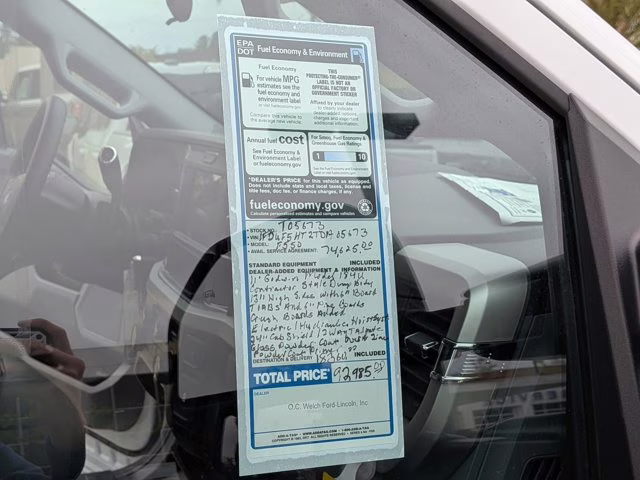 EPA
DOT
Fuel Economy & Environment
Fuel Economy
For vehicle MPG
estimates see the
fuel economy and
environment label
or visit fueleconomy.gov
Compare this vehicle to
the average new vehicle.
THIS
PROTECTING-THE-CONSUMER
LABEL IS NOT AN
OFFICIAL FACTORY OR
GOVERNMENT STICKER
Affixed by your dealer
to clearly indicate
dealer-added options,
charges and important
additional information.
Annual fuel cost
See Fuel Economy &
Environment Label
or fueleconomy.gov
For Smog, Fuel Economy &
Greenhouse Gas Ratings
1 10
See the Fuel Economy & Environment Label
or visit fueleconomy.gov
*DEALER'S PRICE for this vehicle as equipped.
Does not include state and local taxes, license and
title fees, doc fee, or finance charges, if any
fueleconomy.gov
Calculate personalized estimates and compare vehicles
• STOCK NO. T05673
• VIN 1FDUF5HT2TDA05673
• MODEL: F550
• AVAIL. SERVICE AGREEMENT: 74,625.00
STANDARD EQUIPMENT INCLUDED
DEALER-ADDED EQUIPMENT & INFORMATION
11' Godwin Model 184U
Contractor Style Dump Body
13" High Sides with 6" Board
Added
Electric/Hydraulic Hoist
24" Cab Shield
Powder Coat
DESTINATION & DELIVERY 18,360.00 INCLUDED
TOTAL PRICE* 92985.00
DEALER
O.C. Welch Ford-Lincoln, Inc